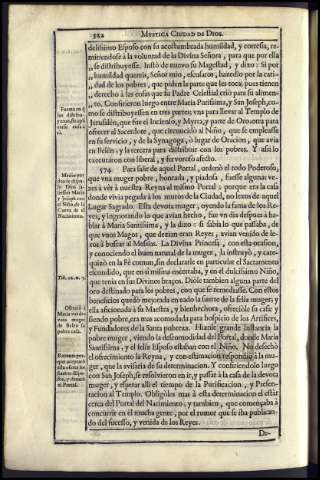 522 MYSTICA CIUDAD DE DIOS.
delissimo Esposo con su acostumbrada humildad, y cortesia, re-
mitiendose à la voluntad de la Divina Señora, para que por ella
se distribuyesse. Instò de nuevo su Magestad, y dixo: Si por
humildad quereis, Señor mio, escusaros, hazedlo por la cari-
dad de los pobres, que piden la parte que les toca; pues tienen
derecho à las cosas que su Padre Celestial criò para su alimen-
to. Confirieron luego entre Maria Purissima, y San Joseph, co-
mo se distribuyessen en tres partes; vna para llevar al Templo de
Jerusalèn, que fue el Incienso, y Myrra, y parte de Oro; otra para
ofrecer al Sacerdote, que circuncidò al Niño, que se empleasse
en su servicio, y de la Synagoga, ò lugar de Oracion, que avia
en Belèn; y la tercera para distribuir con los pobres. Y assi lo
executaron con liberal, y fervoroso afecto.
574. Para salir de aquel Portal, ordenò el todo Poderoso,
que vna muger pobre, honrada, y piadosa, fuesse algunas ve-
zes à vèr à nuestra Reyna al mismo Portal; porque era la casa
donde vivia pegada à los muros de la Ciudad, no lexos de aquel
Lugar Sagrado. Esta devota muger, oyendo la fama de los Re-
yes, y ignorando lo que avian hecho, fue vn dia despues à ha-
blar à Maria Santissima, y la dixo: si sabia lo que passaba, de
que vnos Magos, que dezian eran Reyes, avian venido de le-
xos à buscar al Messias. La Divina Princesa, con esta ocasion,
y conociendo el buen natural de la muger, la instruyò, y cate-
quizò en la Fè comun, sin declararle en particular el Sacramento
escondido, que en si misma encerraba, y en el dulcissimo Niño,
que tenia en sus Divinos braços. Diòle tambien alguna parte del
oro destinado para los pobres, con que se remediasse. Con estos
beneficios quedò mejorada en todo la suerte de la feliz muger, y
ella aficionada à su Maestra, y bienhechora, ofreciòle su casa; y
siendo pobre, era mas acomodada para hospicio de los Artifices,
y Fundadores de la Santa pobreza. Hizole grande instancia la
pobre muger, viendo la descomodidad del Portal, donde Maria
Santissima, y el feliz Esposo estaban con el Niño. No desechò
el ofrecimiento la Reyna, y con estimacion respondiò à la mu-
ger, que la avisaria de su determinacion. Y confiriendolo luego
con San Joseph, se resolvieron en ir, y passar à la casa de la devota
muger, y esperar alli el tiempo de la Purificacion, y Presen-
tacion al Templo. Obligòles mas à esta determinacion el estàr
cerca del Portal del Nacimiento; y tambien, que començaba à
concurrir en èl mucha gente, por el rumor que se iba publican-
do del sucesso, y venida de los Reyes.
De-